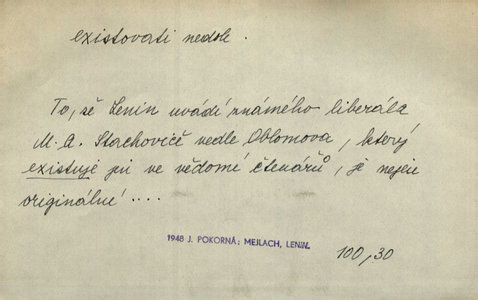 existovati nedok.
To, že Lenin uvádí známého liberála
M. A. Stachoviče vedle Oblomova, který
existuje jen ve vědomí čtenářů, je nejen
originálné ....
1948 J. POKORNÁ; MEJLACH, LENIN.
100,30